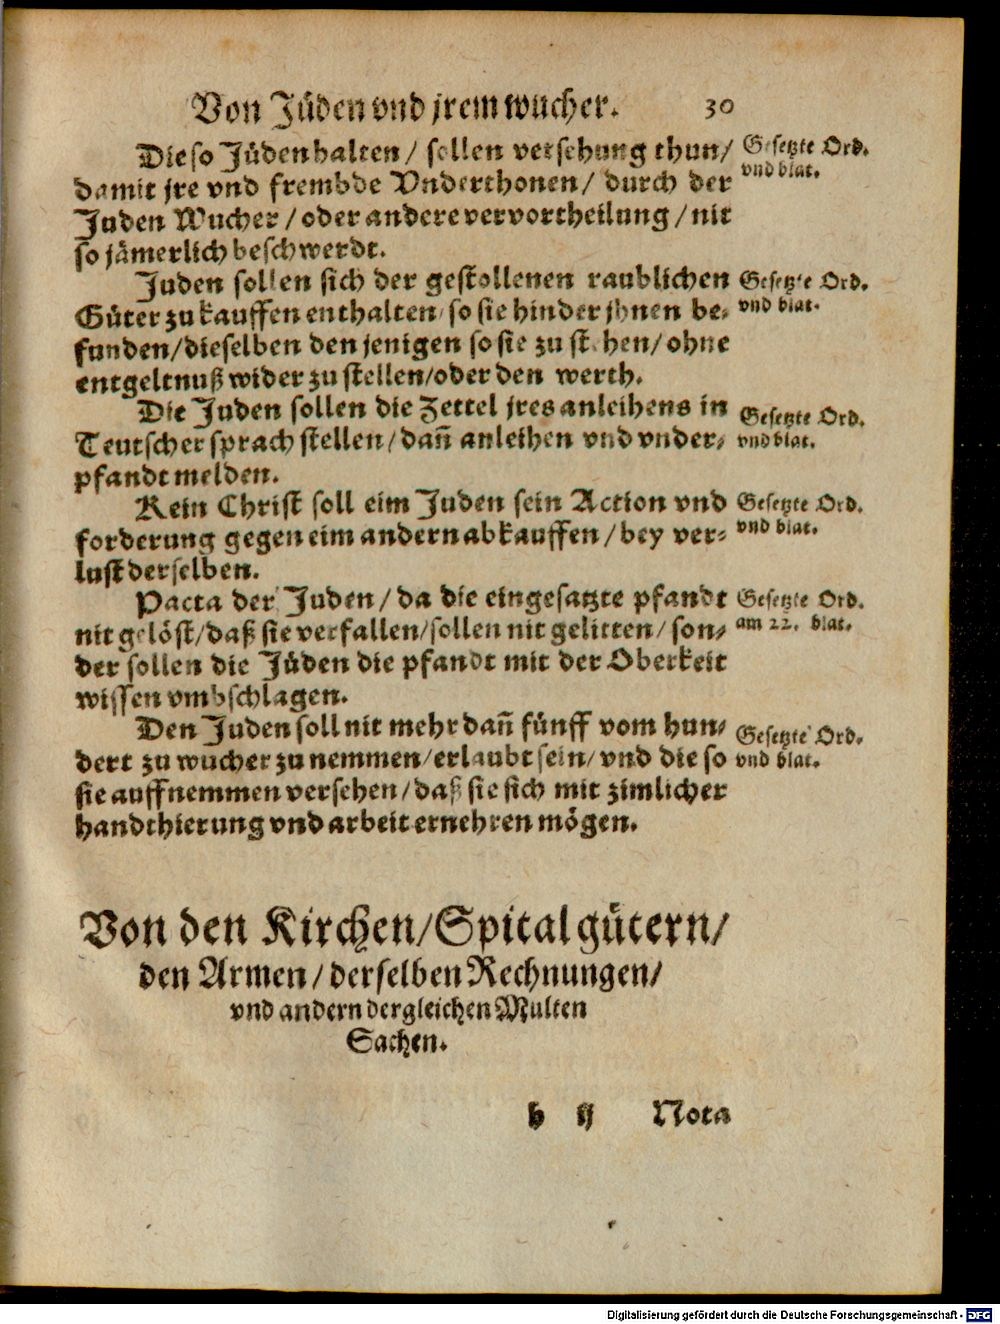 Von Jüden vnd jrem wucher. 30
Die so Jüden halten / sollen versehung thun/
damit jre vnd frembde Vnderthonen / durch der
Juden Wucher / oder andere vervortheilung / nit
so jämerlich beschwerdt.
Gesetzte Ord.
vnd blat.
Juden sollen sich der gestollenen raublichen
Güter zu kauffen enthalten / so sie hinder jhnen be⸗
funden / dieselben den jenigen so sie zu stehen / ohne
entgeltnuß wider zu stellen / oder den werth.
Gesetzte Ord.
vnd blat.
Die Juden sollen die Zettel jres anleihens in
Teutscher sprach stellen / dañ anleihen vnd vnder⸗
pfandt melden.
Gesetzte Ord.
vnd blat.
Kein Christ soll eim Juden sein Action vnd
forderung gegen eim andern abkauffen / bey ver⸗
lust derselben.
Gesetzte Ord.
vnd blat.
Pacta der Juden / da die eingesatzte pfandt
nit gelöst / daß sie verfallen / sollen nit gelitten / son⸗
der sollen die Jüden die pfandt mit der Oberkeit
wissen vmbschlagen.
Gesetzte Ord.
am 22. blat.
Den Juden soll nit mehr dañ fünff vom hun⸗
dert zu wucher zu nemmen / erlaubt sein / vnd die so
sie auffnemmen versehen / daß sie sich mit zimlicher
handthierung vnd arbeit ernehren mögen.
Gesetzte Ord.
vnd blat.
Von den Kirchen / Spitalgütern /
den Armen / derselben Rechnungen /
vnd andern dergleichen Multen
Sachen.
h ij Nota
Digitalisierung gefördert durch die Deutsche Forschungsgemeinschaft - DFG